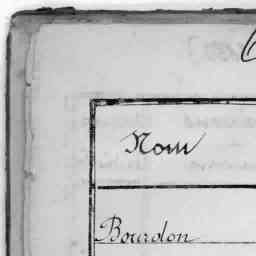 Nom
Bourdon